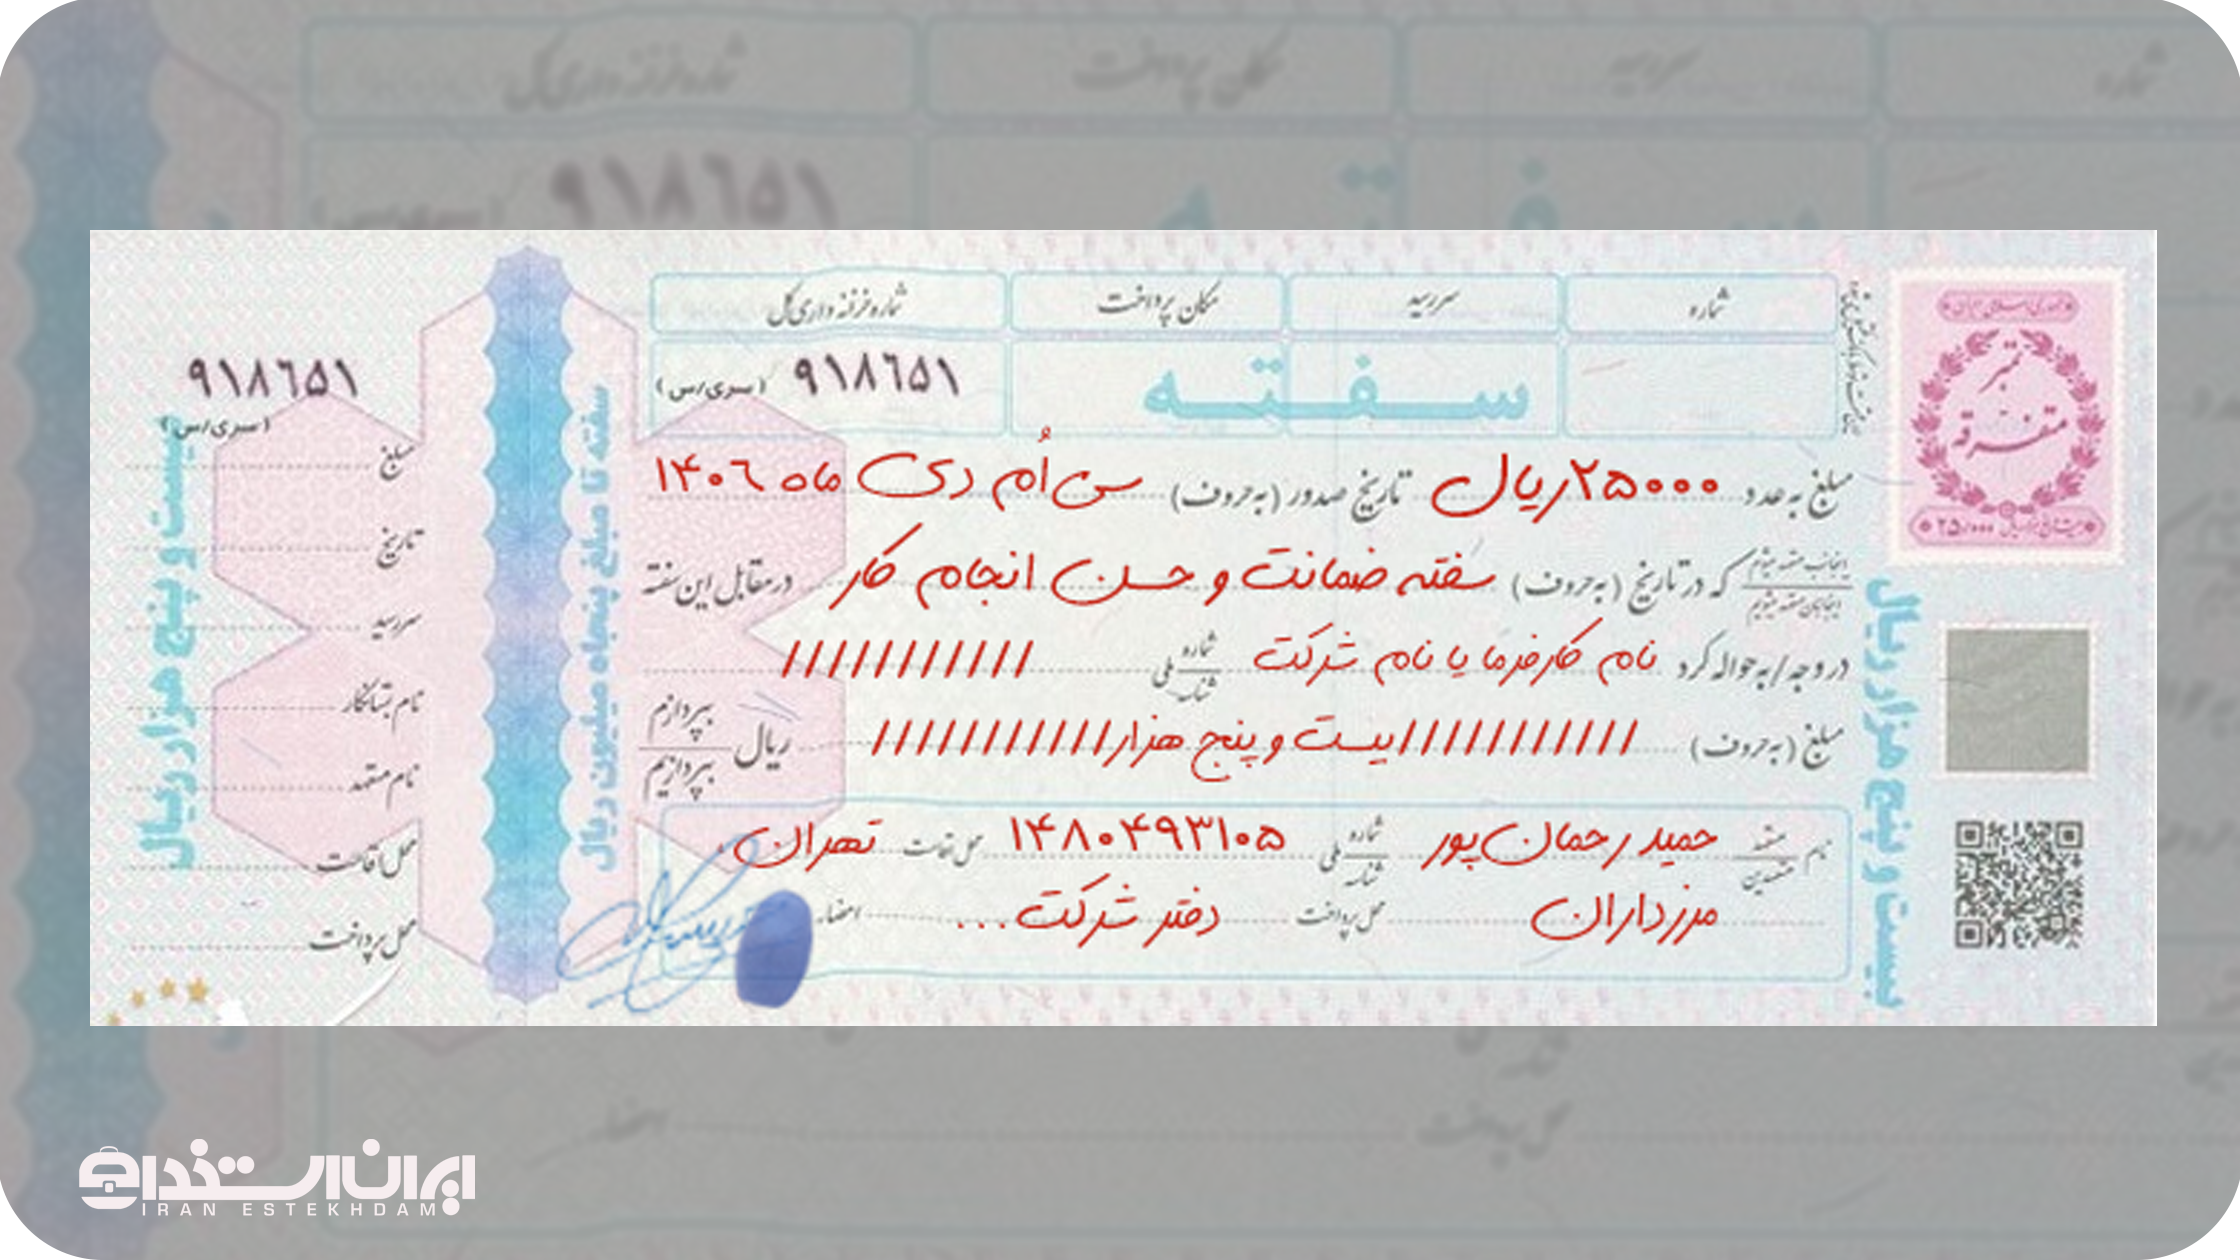 شماره
سررسید
مکان پرداخت
شماره خزانه داری کل
سفته
۹۱۸۶۵۱
(سری/س)
مبلغ به عدد ۲۵۰۰۰ ریال تاریخ صدور (به حروف) سی اُم دی ماه ۱۴۰۶
اینجانب متعهد میشوم
اینجانبان متعهد میشویم
که در تاریخ (به حروف) سفته ضمانت و حسن انجام کار در مقابل این سفته
در وجه/به حواله کرد نام کارفرما یا نام شرکت شماره ملی شناسه ///////////
مبلغ (به حروف) ///////////بیست و پنج هزار/////////// ریال بپردازم
بپردازیم
نام متعهد متعهدین حمید رحمان‌پور شماره ملی شناسه ۱۴۸۰۴۹۳۱۰۵ محل اقامت تهران،
مرزداران محل پرداخت دفتر شرکت ... امضاء
تمبر
متفرقه
۲۵/۰۰۰
بیست و پنج هزار ریال
سفته تا مبلغ پنجاه میلیون ریال
بیست و پنج هزار ریال
۹۱۸۶۵۱
(سری/س)
مبلغ
تاریخ
سررسید
نام بستانکار
نام متعهد
محل اقامت
محل پرداخت
ایران استخدام
IRAN ESTEKHDAM